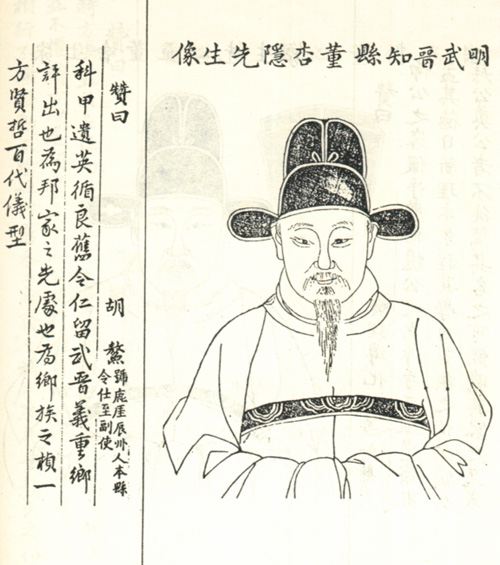 明武晉知縣董杏隱先生像
贊曰
胡鰲
號鹿崖辰州人本縣
令仕至副使
科甲遺英循良舊令仁留武晉義重鄉
評出也為邦家之先處也為鄉族之楨一
方賢哲百代儀型